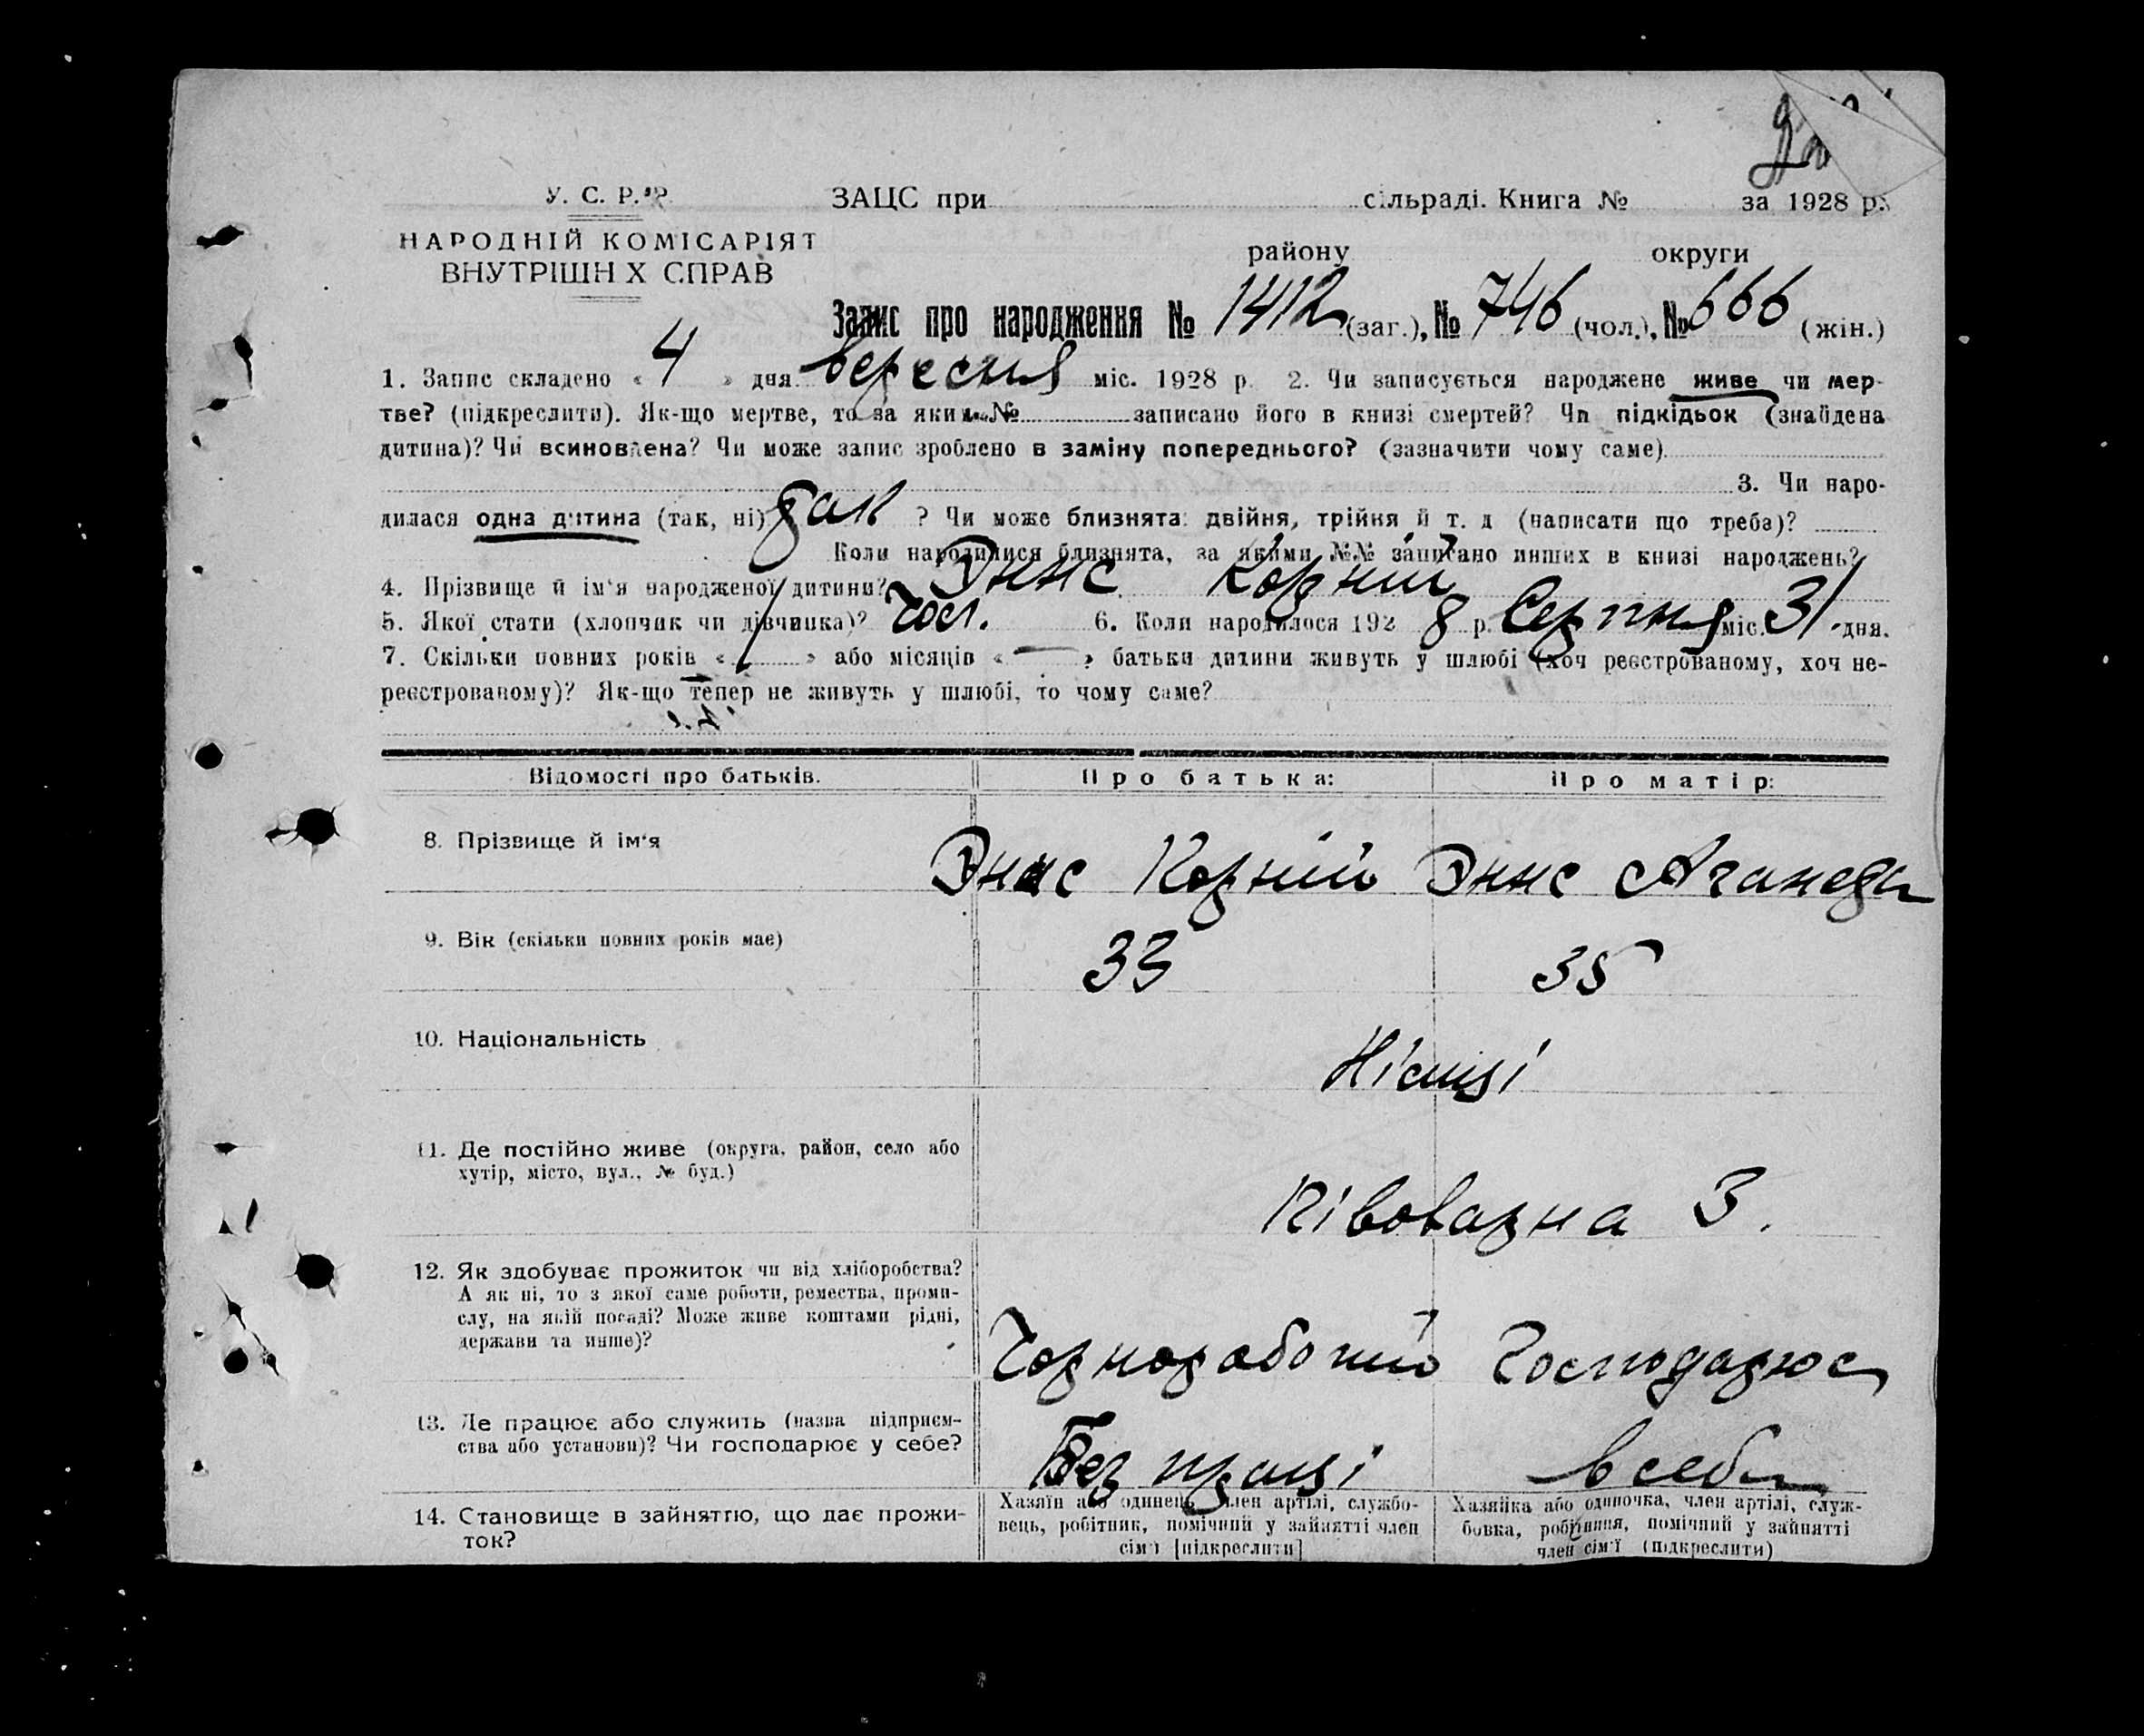 У. С. Р. Р.
ЗАЦС при сільраді. Книга № за 1928 р.
НАРОДНІЙ КОМІСАРІЯТ
ВНУТРІШН Х СПРАВ
району округи
Запис про народження № 1412 (заг.), № 746 (чол.), № 666 (жін.)
1. Запис складено « 4 » дня вересня міс. 1928 р. 2. Чи записується народжене живе чи мер-
тве? (підкреслити). Як-що мертве, то за яким № записано його в книзі смертей? Чи підкідьок (знайдена
дитина)? Чи всиновлена? Чи може запис зроблено в заміну попереднього? (зазначити чому саме)
3. Чи наро-
дилася одна дитина (так, ні) ? Чи може близнята: двійня, трійня й т. д (написати що треба)?
Коли народилися близнята, за якими №№ записано инших в книзі народжень?
4. Прізвище й ім'я народженої дитини? Эннс Корній
5. Якої стати (хлопчик чи дівчинка)? Чол. 6. Коли народилося 192 8 р. Серпня міс. 31 дня.
7. Скільки повних років « » або місяців « — » батьки дитини живуть у шлюбі (хоч реєстрованому, хоч не-
реєстрованому)? Як-що тепер не живуть у шлюбі, то чому саме?
Відомості про батьків. Про батька: Про матір:
8. Прізвище й ім'я Эннс Корній Эннс Аганеда
9. Вік (скільки повних років має) 33 35
10. Національність Німці
11. Де постійно живе (округа, район, село або
хутір, місто, вул., № буд.)
Півоварна 3.
12. Як здобуває прожиток чи від хліборобства?
А як ні, то з якої саме роботи, ремества, проми-
слу, на якій посаді? Може живе коштами рідні,
держави та инше)?
Чорноробочий Господарює
13. Де працює або служить (назва підприєм-
ства або установи)? Чи господарює у себе?
Без праці в себе
14. Становище в зайняттю, що дає прожи-
ток?
Хазяїн або одинець, член артілі, службо-
вець, робітник, помічний у зайнятті член
сім'ї [підкреслити]
Хазяйка або одиночка, член артілі, служ-
бовка, робітниця, помічний у зайнятті
член сім'ї (підкреслити)